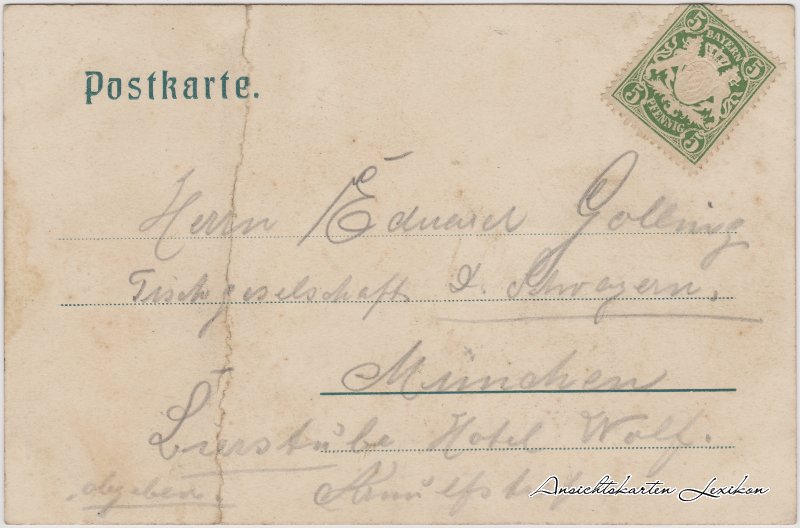 Postkarte.
5 BAYERN 5
5 PFENNIG 5
Herrn Eduard Golling
Tischgeselschaft d. Schwagern.
München
Hotel Wolf.
abgeben. Arnulfstr
Ansichtskarten Lexikon